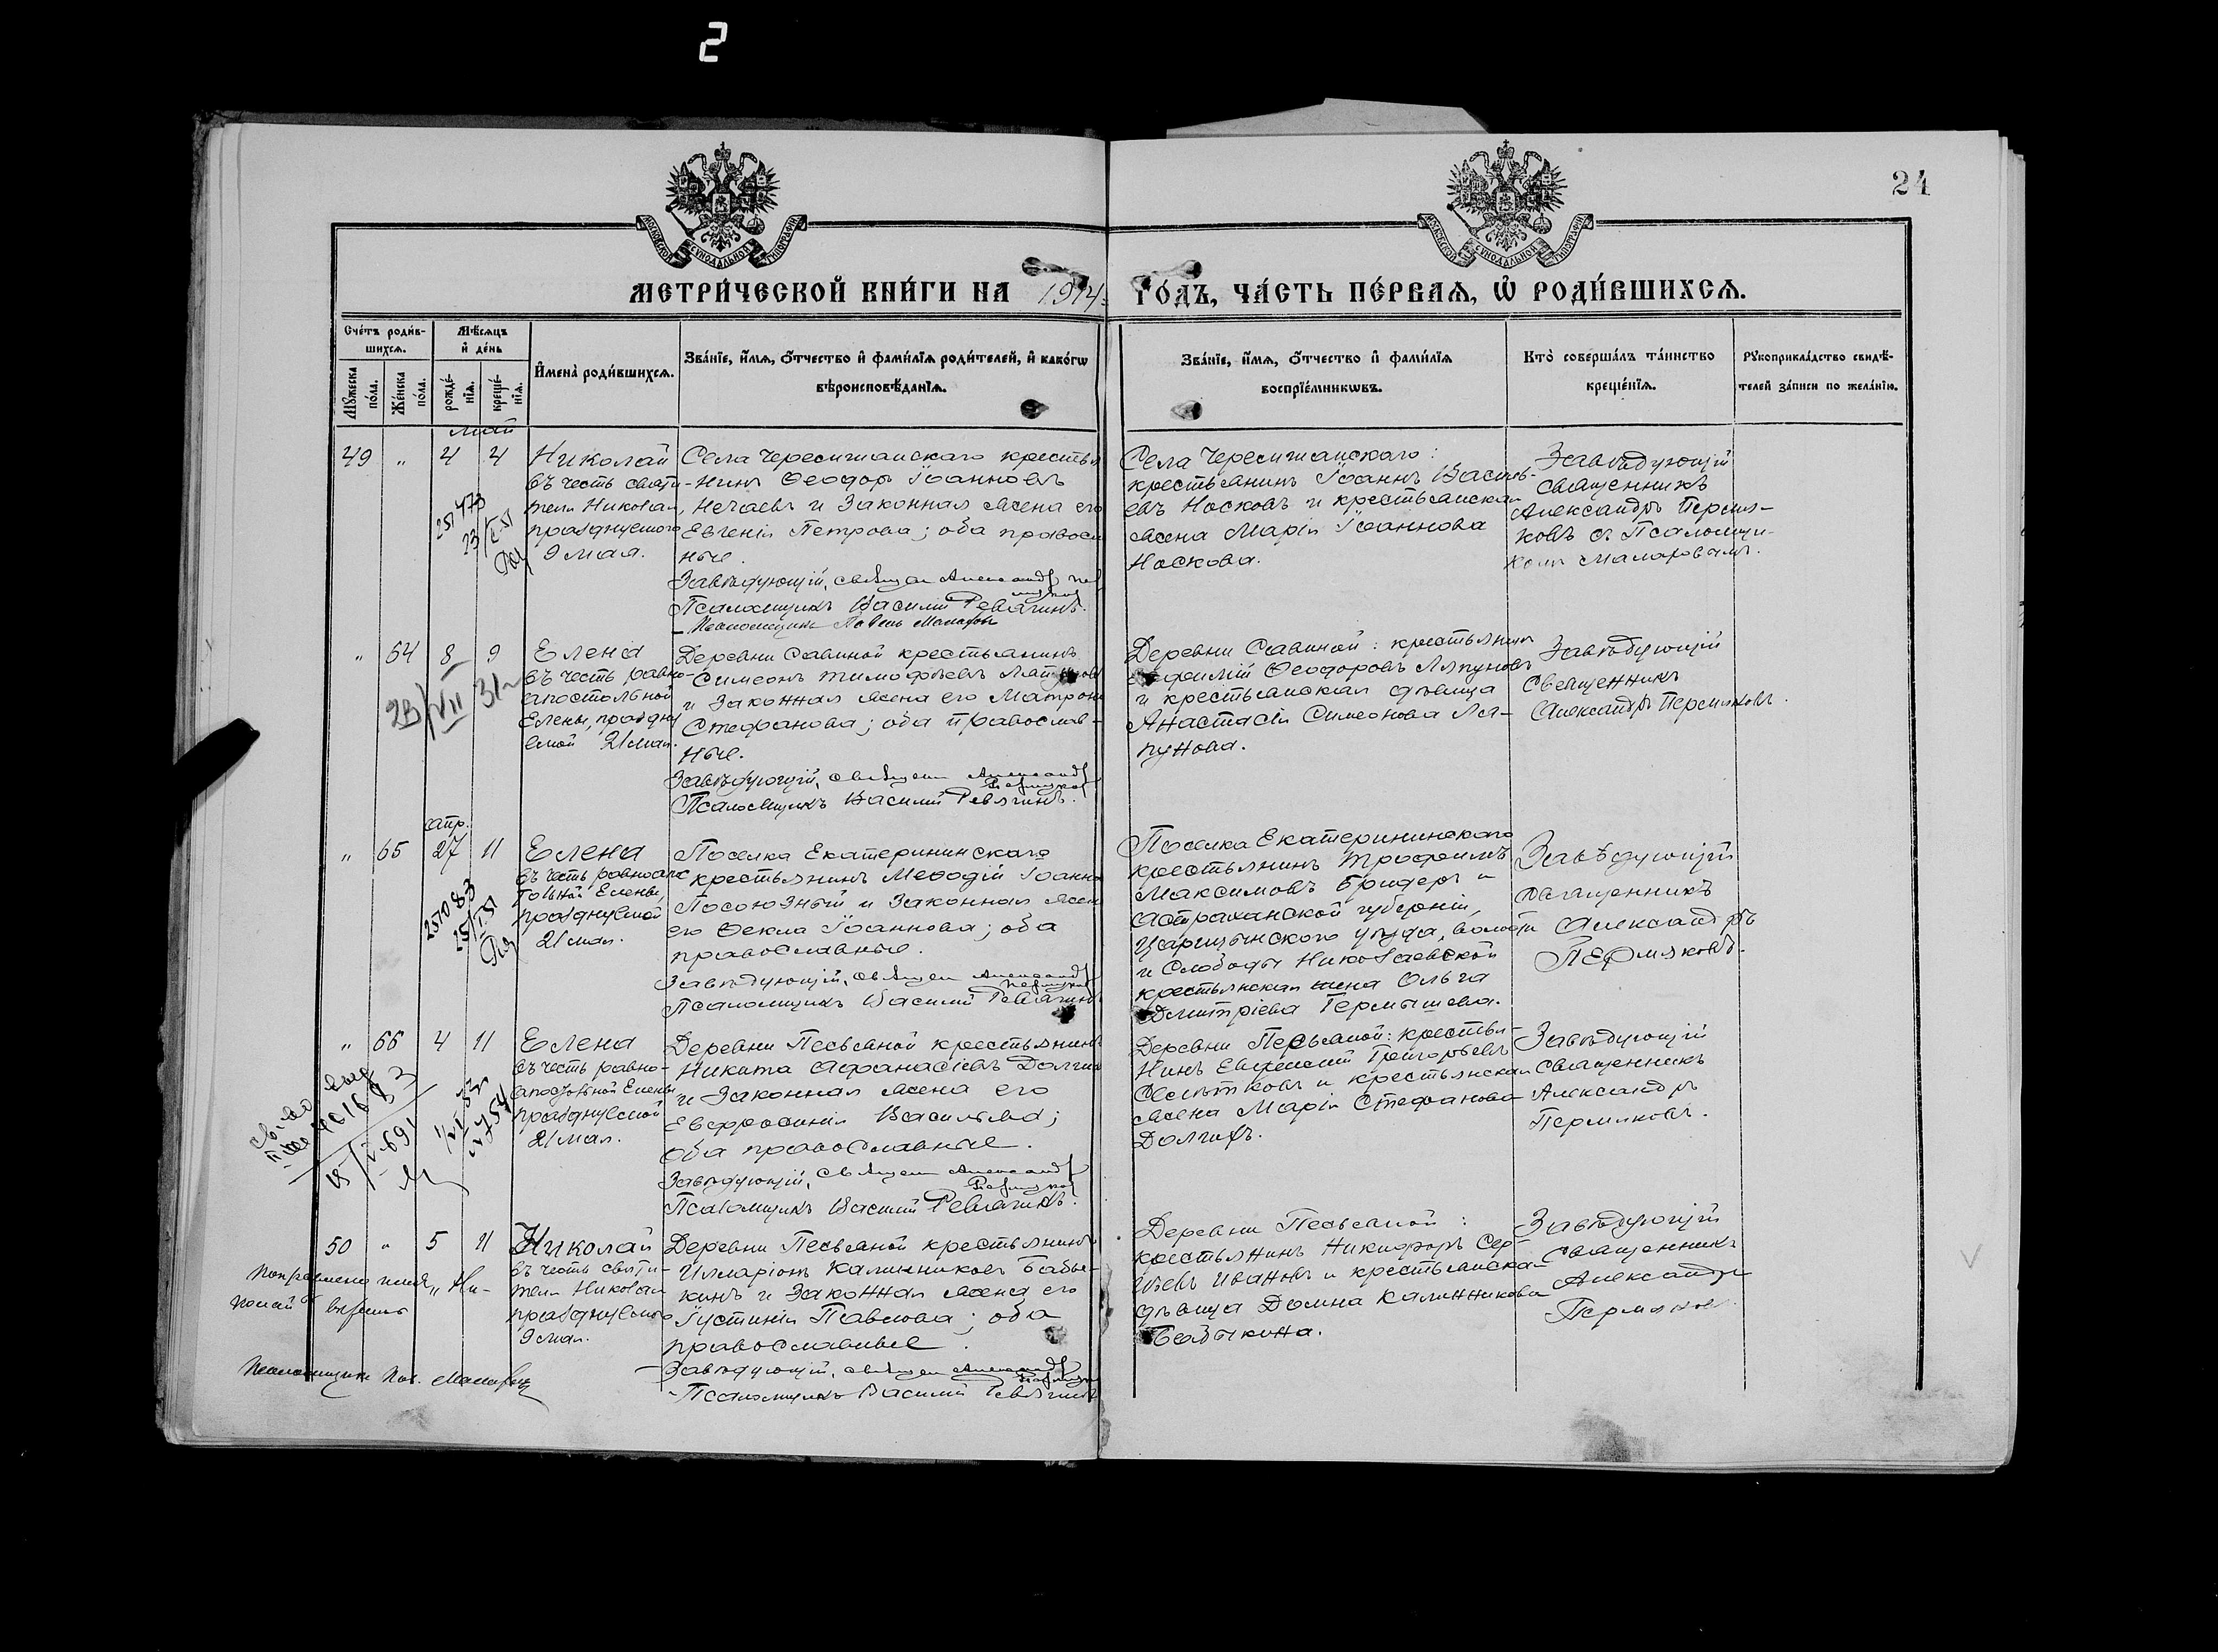 2
24
МОСКОВСКОЙ СУНОДАЛЬНОЙ ТИПОГРАФІИ
МОСКОВСКОЙ СУНОДАЛЬНОЙ ТИПОГРАФІИ
МЕТРИ́ЧЕСКОЙ КНИ́ГИ НА 1914 ГО́ДЪ, ЧА́СТЬ ПЕ́РВАѦ, Ѡ҆ РОДИ́ВШИХСѦ.
Сче́тъ роди́в-
шихсѧ.
Мꙋ́жеска по́ла.
Же́нска по́ла.
Мѣ́сѧцъ
и҆ де́нь
рожде́-
нїѧ.
креще́-
нїѧ.
И҆мена̀ роди́вшихсѧ.
Зва́нїе, и҆́мѧ, ѻ҆́тчество и҆ фами́лїѧ роди́телей, и҆ како́гѡ
вѣроисповѣ́данїѧ.
Зва́нїе, и҆́мѧ, ѻ҆́тчество и҆ фами́лїѧ
воспрїе́мникѡвъ.
Кто̀ соверша́лъ та́инство
креще́нїѧ.
Рꙋкоприкла́дство свидѣ́-
телей за́писи по жела́нїю.
май
49 " 4 4
Николай
въ честь святи-
теля Николая,
празднуемого
9 мая.
251473
Села Черемшанскаго крестья
нинъ Ѳеодоръ Іоанновъ
Нечаевъ и законная жена его
Евгенія Петрова; оба правосл
ные.
Завѣдующій, священ Александръ
Псаломщикъ Василій Ревягинъ.
Псаломщикъ Павелъ
Села Черемшанскаго:
крестьянинъ Іоаннъ Василь-
евъ Носковъ и крестьянская
жена Марія Іоаннова
Носкова.
Завѣдующій
священникъ
Александръ Пермя-
ковъ съ Псаломщи-
комъ
" 64 8 9
23/VII 31
Елена
въ честь равно-
апостольной
Елены, праздну
емой 21 мая.
Деревни Савиной крестьянинъ
Симеонъ Тимофѣевъ
и законная жена его Матрона
Стефанова; оба православ-
ные.
Завѣдующій, священ Александръ
Псаломщикъ Василій Ревягинъ.
Деревни Савиной: крестьянинъ
Ѳеодоровъ Ляпуновъ
и крестьянская дѣвица
Анастасія Симеонова Ля-
пунова.
Завѣдующій
Священникъ
Александръ Пермяковъ.
апр.
" 65 27 11
251083
Елена
въ честь равноапос
тольной Елены,
празднуемой
21 мая.
Поселка Екатерининскаго
крестьянинъ Меѳодій Іоанно
Посоюзный и законная жена
его Ѳекла Іоаннова; оба
православные.
Завѣдующій, священ Александръ
Псаломщикъ Василій Ревягинъ
Поселка Екатерининскаго
крестьянинъ Трофимъ
Максимовъ и
Астраханской губерніи,
Царицынскаго уѣзда, волости
и Слободы Николаевской
крестьянская жена Ольга
Димитріева Гермышева.
Завѣдующій
священникъ
Александръ
Пермяковъ.
" 66 4 11
Елена
въ честь равно-
апостольной Елены
празднуемой
21 мая.
Деревни Песьяной крестьянинъ
Никита Афанасіевъ Долгих
и законная жена его
Евфросинія Васильева;
оба православные.
Завѣдующій, священ Александръ
Псаломщикъ Василій Ревягинъ.
Деревни Песьяной: крестья-
нинъ Григорьевъ
Десятковъ и крестьянская
жена Марія Стефанова
Долгихъ.
Завѣдующій
священникъ
Александръ
Пермяковъ.
50 " 5 11
Николай
въ честь святи-
теля Николая
празднуемого
9 мая.
"Ни-
колай" вѣрно
Псаломщикъ
Деревни Песьяной крестьянинъ
Илларіонъ Калинниковъ Бабы-
кинъ и законная жена его
Іустинія Павлова; оба
православные.
Завѣдующій, священ Александръ
Псаломщикъ Василій Ревягинъ
Деревни Песьяной:
крестьянинъ Никифоръ Сер-
гѣевъ Ивановъ и крестьянская
дѣвица Домна Калинникова
Бабыкина.
Завѣдующій
Священникъ
Александръ
Пермяков